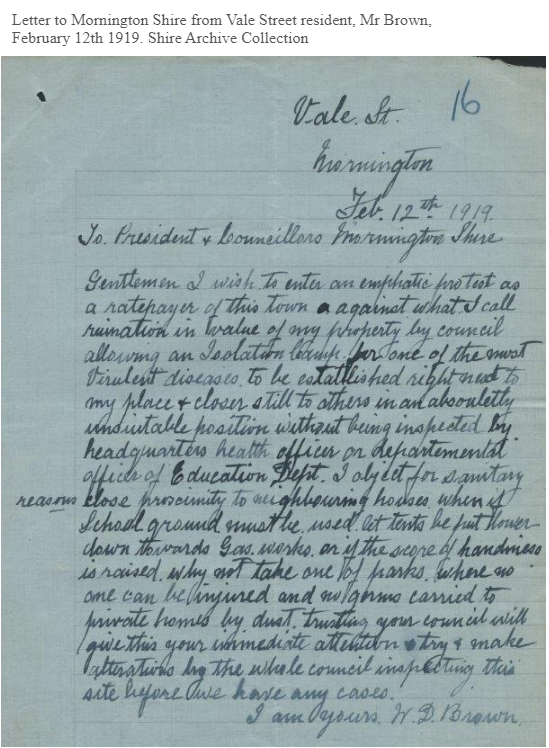 Letter to Mornington Shire from Vale Street resident, Mr Brown,
February 12th 1919. Shire Archive Collection
16
Vale. St.
Mornington
Feb. 12th 1919.
To. President & Councillors Mornington Shire
Gentlemen I wish to enter an emphatic protest as
a ratepayer of this town a against what I call
ruination in value of my property by council
allowing an Isolation Camp for one of the most
Virulent diseases, to be established right next to
my place & closer still to others in an absouletly
unsuitable position without being inspected by
headquarters health officer or departemental
officer of Education Dept. I object for sanitary
reasons close proscinity to neighbouring houses, when if
School ground must be used. let tents be put lower
down towards Gas. works, or if the score of handiness
is raised, why not take one of parks, where no
one can be injured and no germs carried to
private homes by dust, trusting your council will
give this your immediate attention & try & make
alterations by the whole council inspecting this
site before we have any cases.
I am yours, W. D. Brown.